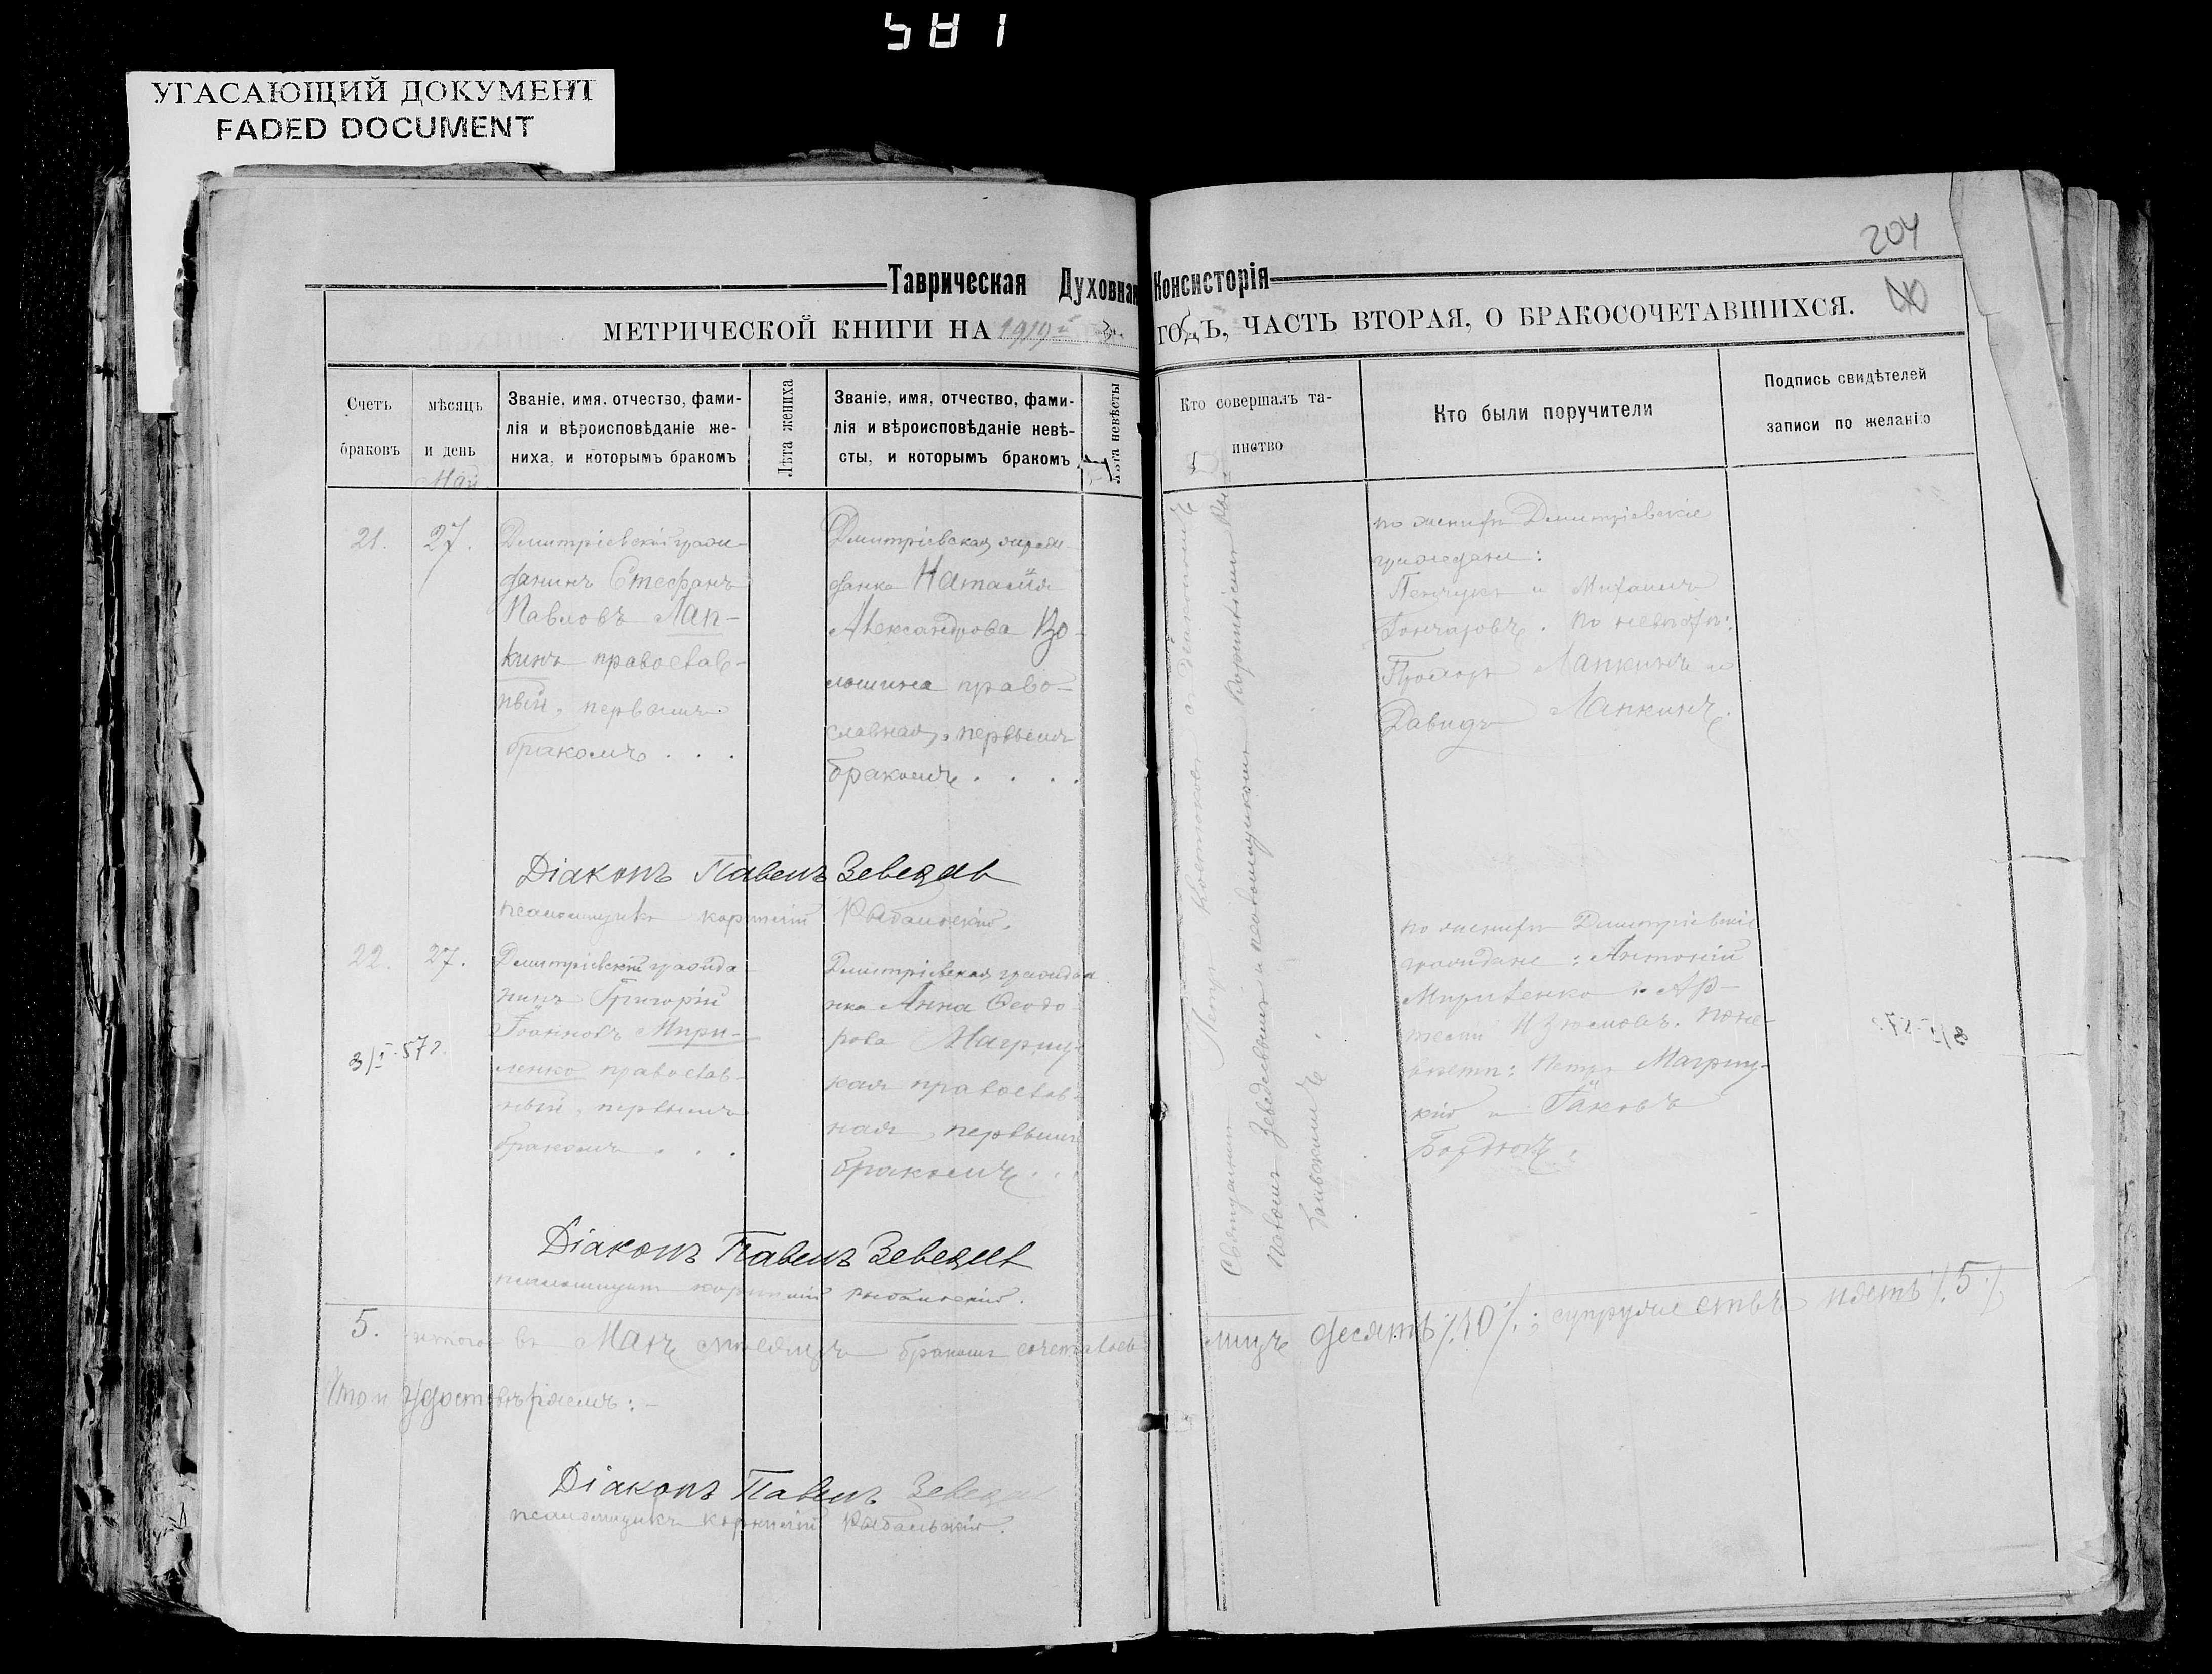 581
УГАСАЮЩИЙ ДОКУМЕНТ
FADED DOCUMENT
204
Таврическая Духовная Консисторія
МЕТРИЧЕСКОЙ КНИГИ НА 1919й ГОДЪ, ЧАСТЬ ВТОРАЯ, О БРАКОСОЧЕТАВШИХСЯ.
Счетъ браковъ
мѣсяцъ и день
Май
Званіе, имя, отчество, фами-
лія и вѣроисповѣданіе же-
ниха, и которымъ бракомъ
Лѣта жениха
Званіе, имя, отчество, фами-
лія и вѣроисповѣданіе невѣ-
сты, и которымъ бракомъ
Лѣта невѣсты
Кто совершалъ та-
инство
Кто были поручители
Подпись свидѣтелей
записи по желанію
21.
27.
Дмитріевскій граж-
данинъ Стефанъ
Павловъ Лап-
кинъ православ-
ный, первымъ
бракомъ . . .
Дмитріевская граж-
данка Наталія
Александрова Во-
лошина право-
славная, первымъ
бракомъ . . . .
по женихѣ Дмитріевскіе
граждане:
и Михаилъ
Гончаровъ. По невѣстѣ:
Лапкинъ и
Давидъ Лапкинъ.
Діаконъ Павелъ Зеведеевъ
псаломщикъ Корнилій Рыбальскій.
22.
27.
3/I-57г.
Дмитріевскій гражда-
нинъ Григорій
Іоанновъ Мири-
ленко православ-
ный, первымъ
бракомъ . . .
Дмитріевская граждан
ка Анна Ѳеодо-
рова Магриц-
кая православ-
ная, первымъ
бракомъ . . .
по женихѣ Дмитріевскіе
граждане: Антоній
Мириленко и
Изюмовъ. По не-
вѣстѣ: Петръ Магриц-
кій и Іаковъ
Священникъ Петръ съ діакономъ
Павломъ Зеведеевымъ и псаломщикомъ Корниліемъ Ры-
бальскимъ.
Діаконъ Павелъ Зеведеевъ
псаломщикъ Корнилій Рыбальскій.
5. Итого въ Маѣ мѣсяцѣ бракомъ сочеталось лицъ десять /.10/.; супружествъ пять /.5./
Что и удостовѣряемъ:-
Діаконъ Павелъ Зеведеевъ
псаломщикъ Корнилій Рыбальскій.